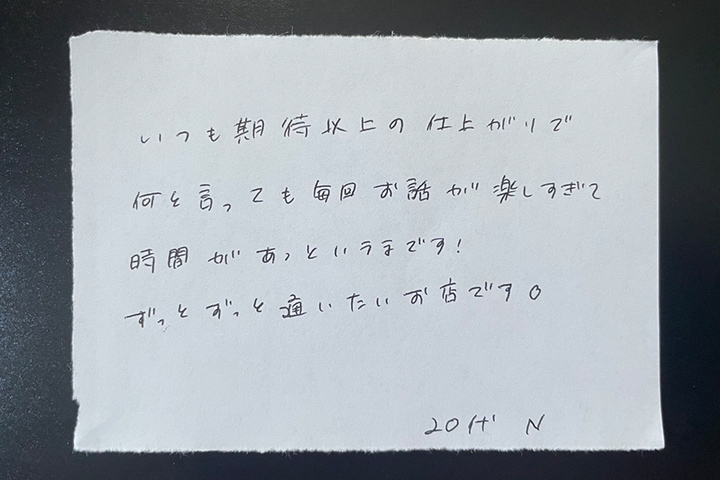 いつも期待以上の仕上がりで
何と言っても毎回お話が楽しすぎて
時間があっというまです!
ずっとずっと通いたいお店です。
20代 N